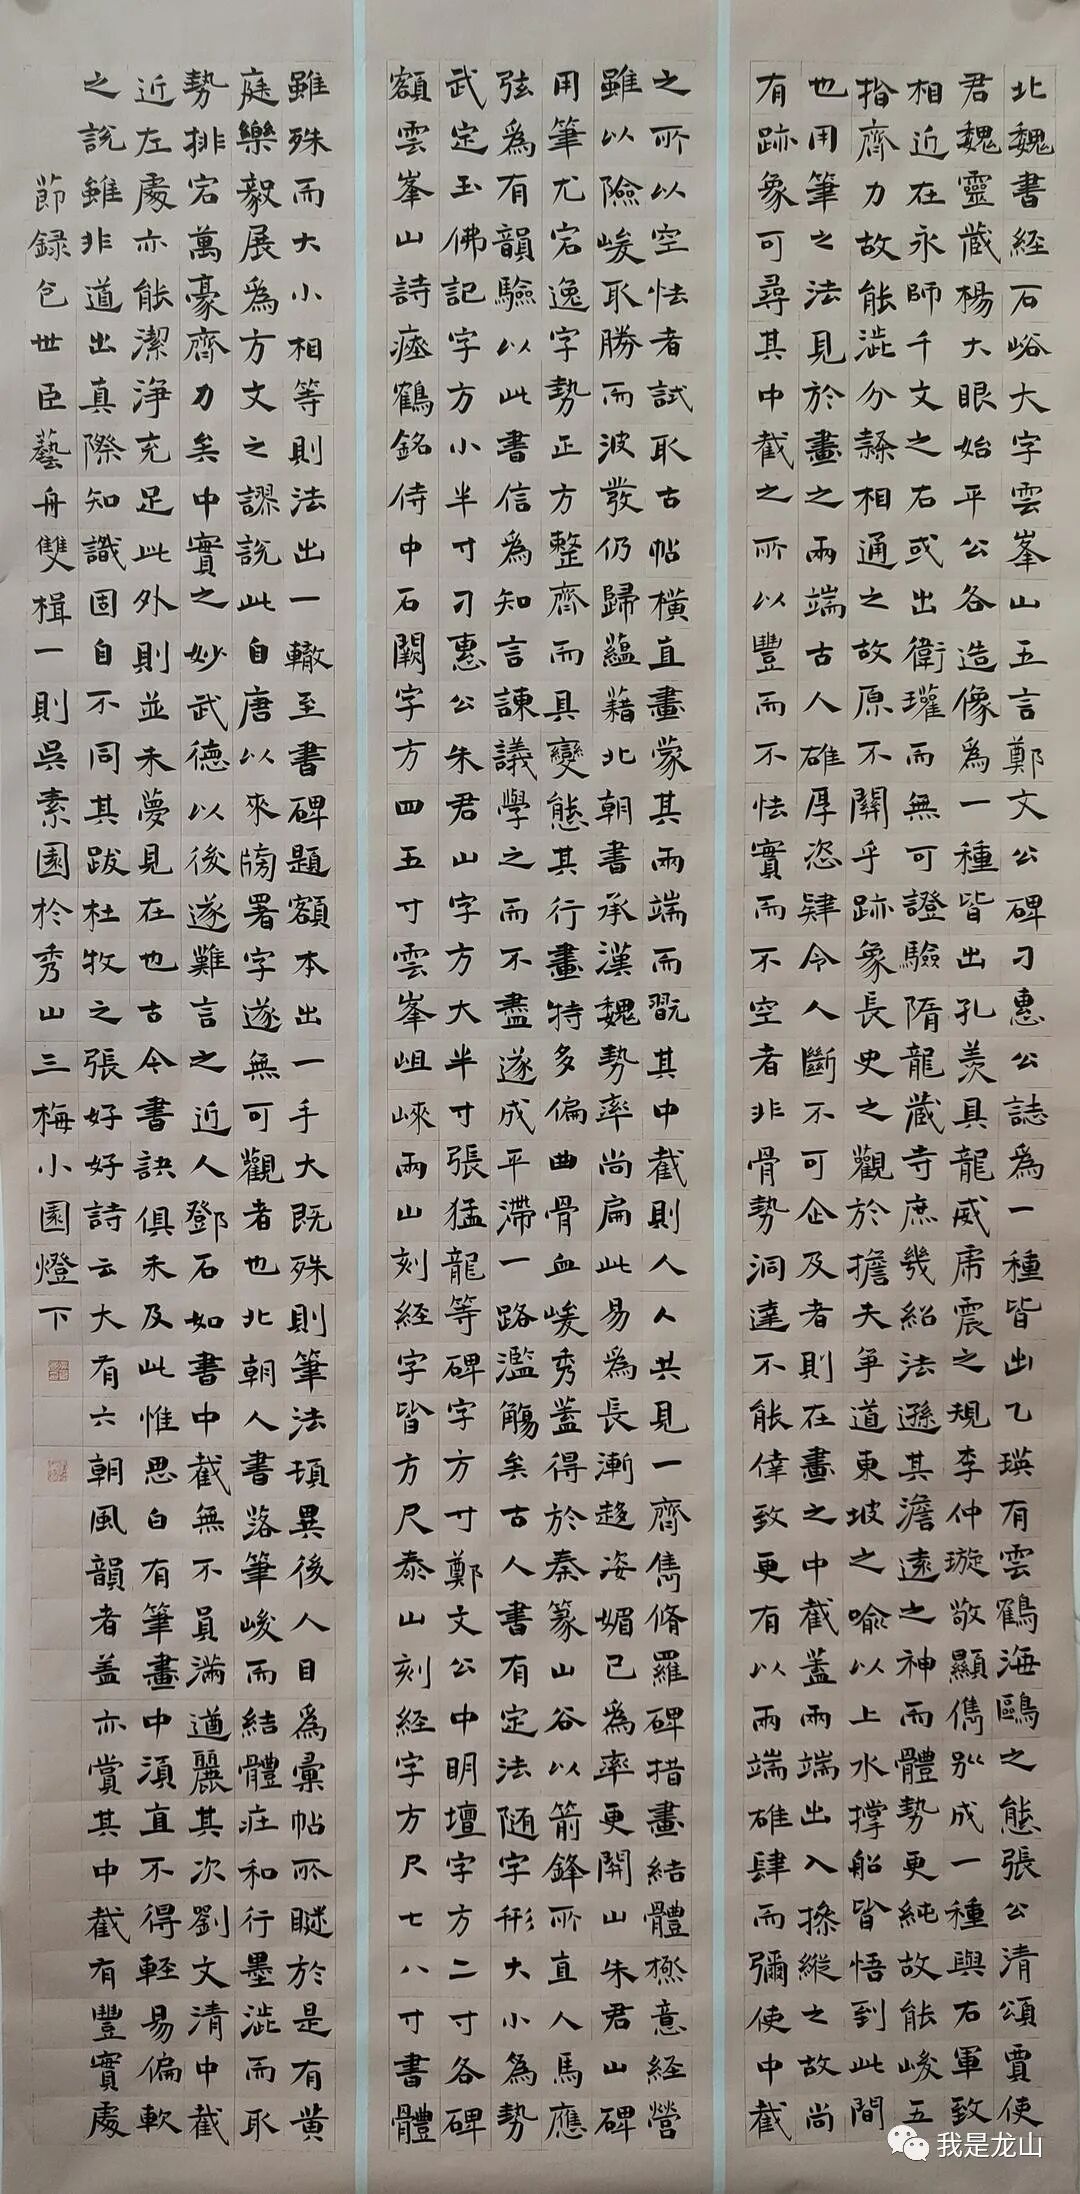 北魏書経石峪大字雲峯山五言鄭文公碑刁惠公誌為一種皆出乙瑛有雲鶴海鷗之態張公清頌賈使
君魏靈蔵楊大眼始平公各造像為一種皆出孔羡具龍威虎震之規李仲璇敬顯儁别成一種與右軍致
相近在永師千文之右或出衛瓘而無可證驗隋龍蔵寺庶幾紹法遜其澹遠之神而體勢更純故能峻五
指齊力故能澁分隸相通之故原不關乎跡象長史之觀於擔夫争道東坡之喻以上水撑船皆悟到此間
也用筆之法見於畫之兩端古人雄厚恣肆令人斷不可企及者則在畫之中截蓋兩端出入操縱之故尚
有跡象可尋其中截之所以豐而不怯實而不空者非骨勢洞達不能倖致更有以兩端雄肆而彌使中截
之所以空怯者試取古帖橫直畫蒙其兩端而翫其中截則人人共見一齊儁脩羅碑措畫結體㯻意経營
雖以險峻取勝而波發仍歸蘊藉北朝書承漢魏勢率尚扁此易為長漸趍姿媚已為率更開山朱君山碑
用筆尤宕逸字勢正方整齊而具變態其行畫特多偏曲骨血峻秀蓋得於秦篆山谷以箭鋒所直人馬應
弦為有韻驗以此書信為知言諫議學之而不盡遂成平滯一路濫觴矣古人書有定法随字形大小為勢
武定玉佛記字方小半寸刁惠公朱君山字方大半寸張猛龍等碑字方寸鄭文公中明壇字方二寸各碑
額雲峯山詩瘞鶴銘侍中石闕字方四五寸雲峯岨崍兩山刻経字皆方尺泰山刻経字方尺七八寸書體
雖殊而大小相等則法出一轍至書碑題額本出一手大既殊則筆法頓異後人目為彙帖所瞇於是有黄
庭樂毅展為方文之謬説此自唐以來牓署字遂無可觀者也北朝人書落筆峻而結體庄和行墨澁而取
勢排宕萬豪齊力矣中實之妙武德以後遂難言之近人鄧石如書中截無不員滿遒麗其次劉文清中截
近左處亦能潔浄充足此外則並未夢見在也古今書訣俱未及此惟思白有筆畫中須直不得輕易偏軟
之説雖非道出真際知識固自不同其跋杜牧之張好好詩云大有六朝風韻者盖亦賞其中截有豐實處
節録包世臣藝舟雙楫一則吳素園於秀山三梅小園燈下
我是龙山